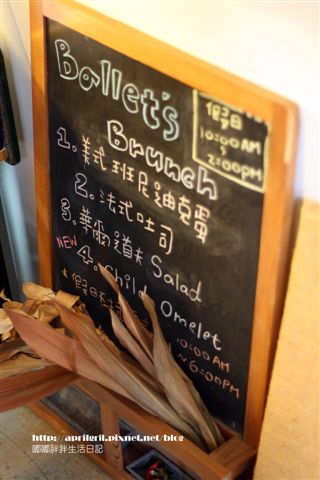 Ballet's
Brunch
假日
10:00AM
~
2:00PM
1. 美式班尼迪克蛋
2. 法式吐司
3. 華爾道夫 Salad
NEW 4. Child Omelet
*假日
10:00AM
~6:00PM
http://aprilgril.pixnet.net/blog
嘟嘟胖胖生活日記